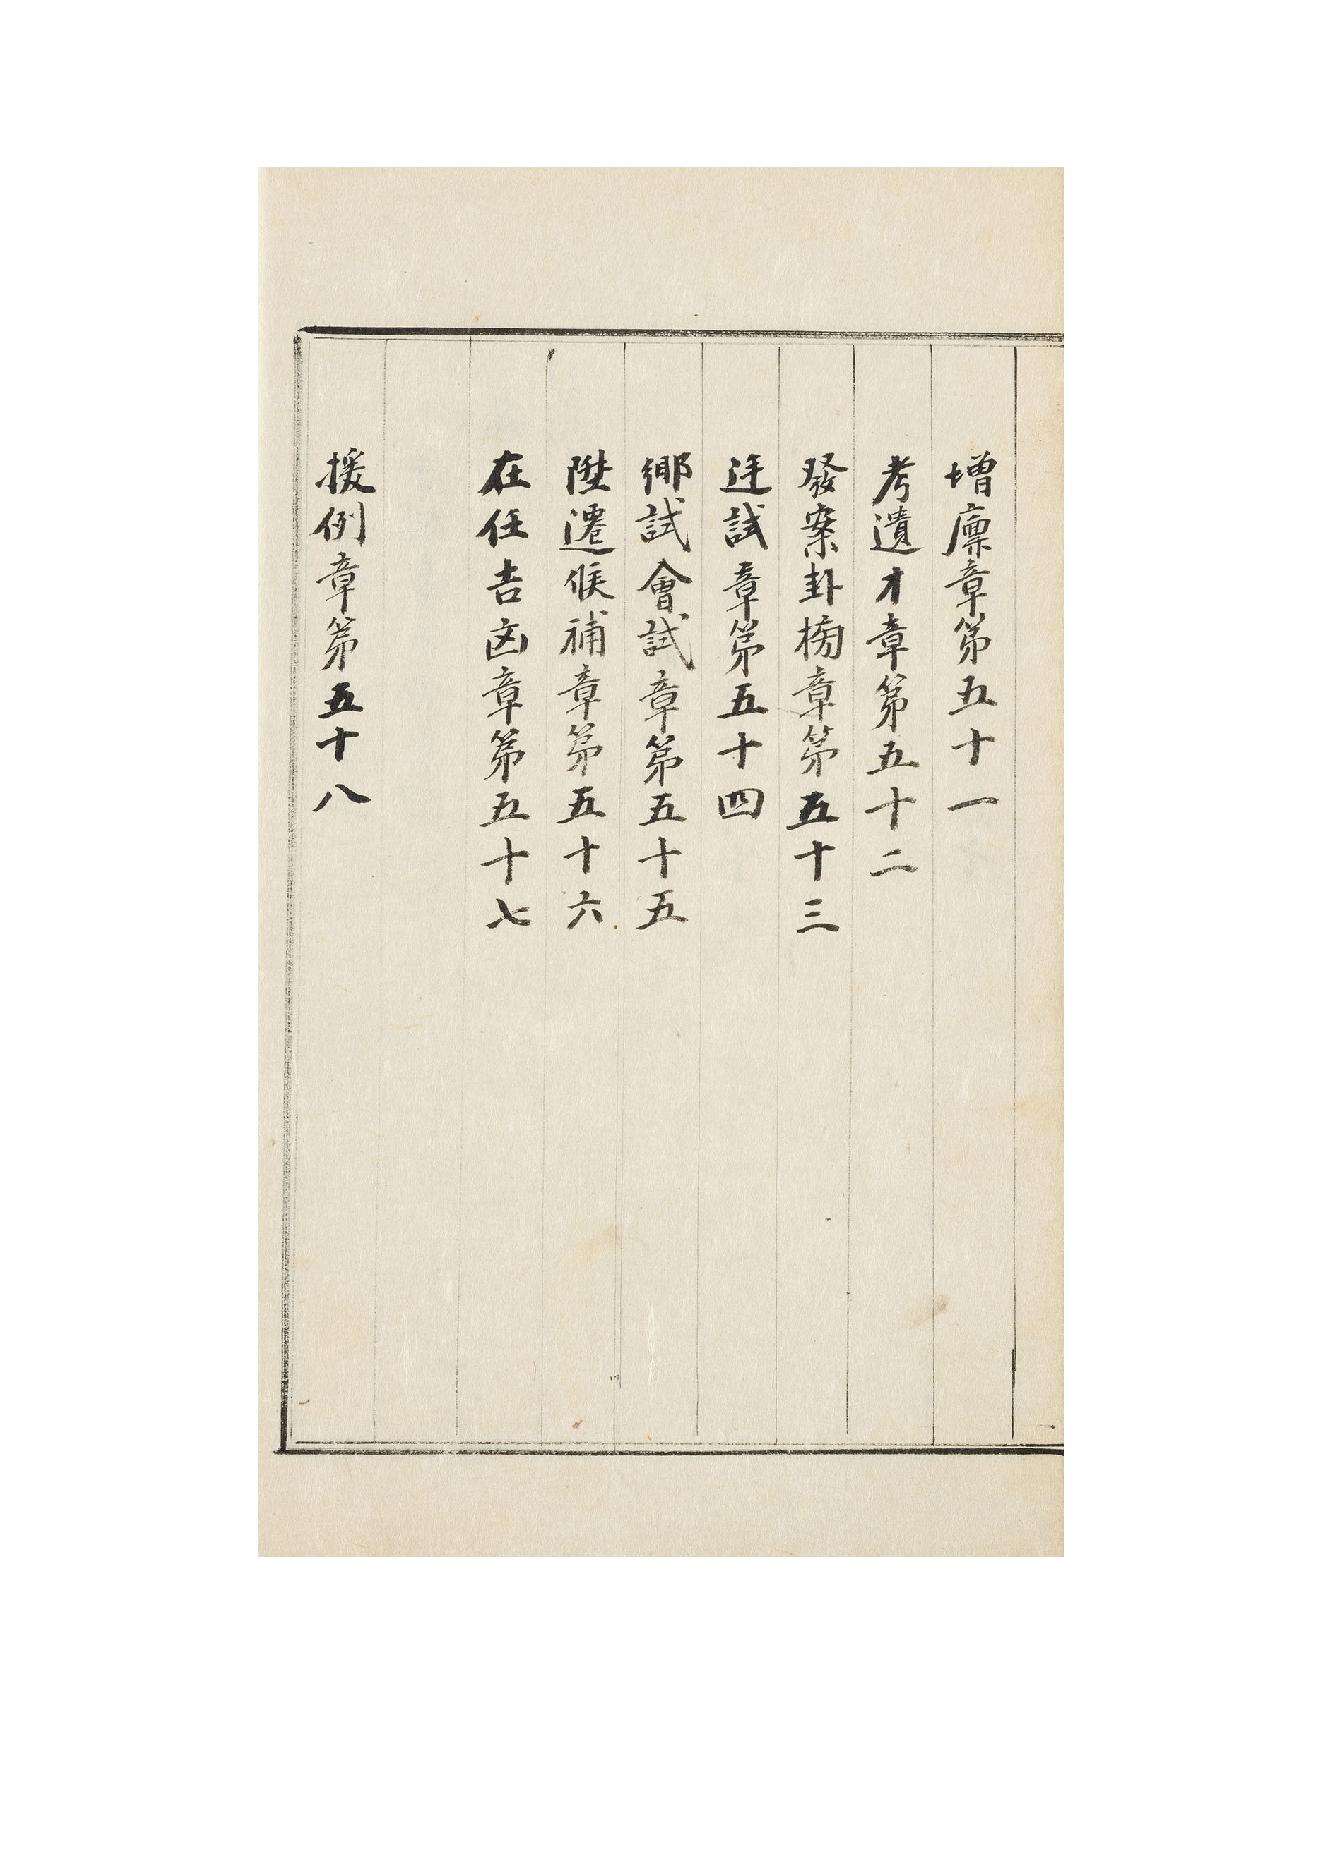 增廩章第五十一
考遺才章第五十二
發案卦榜章第五十三
廷試章第五十四
鄉試會試章第五十五
陞遷候補章第五十六
在任吉凶章第五十七
援例章第五十八